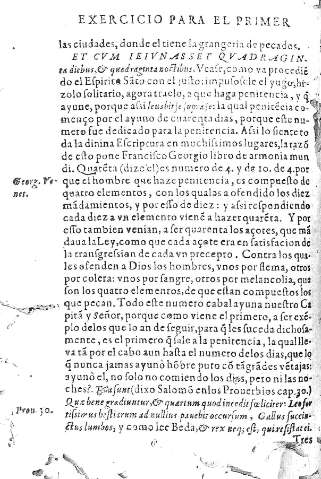 EXERCICIO PARA EL PRIMER
las ciudades, donde el tiene la grangeria de pecados.
ET CVM IEIVNASSET QVADRAGIN-
ta diebus, & quadraginta noctibus. Vease, como va procedié
do el Espiritu Sãto con el justo: impusosele el yugo, hi-
zolo solitario, agora traelo, a que haga penitencia, y q̃
ayune, porque assi leuabit se supra se: la qual peniteͤcia co-
menço por el ayuno de cuareͤta dias, porque este nu-
mero fue dedicado para la penitencia. Assi lo siente to
da la diuina Escriptura en muchissimos lugares, la razõ
de esto pone Francisco Georgio libro de armonia mun
di. Quarẽta (dize el) es numero de 4. y de 10. de 4. por
Georg. Ve-
net.
que el hombre que haze penitencia, es compuesto de
quatro elementos, con los quales a ofendido los diez
mãdamientos, y por esso de diez: y assi respondiendo
cada diez a vn elemento vienẽ a hazer quarẽta. Y por
esso tambien venian, a ser quarenta los açores, que mã
daua la Ley, como que cada açote era en satisfacion de
la transgression de cada vn precepto. Contra los qua-
les ofenden a Dios los hombres, vnos por flema, otros
por colera: vnos por sangre, otros por melancolia, que
son los quatro elementos, de que estan compuestos los
que pecan. Todo este numero cabal ayuna nuestro Ca
pitã y Señor, porque como viene el primero, a ser exẽ
plo delos que lo an de seguir, para q̃ les suceda dichosa-
mente, es el primero q̃ sale a la penitencia, la qual lle-
va tã por el cabo aun hasta el numero delos dias, que lo
q̃ nunca jamas ayunò hõbre puro cõ tã grãdes vẽtajas:
ayunò el, no solo no comiendo los dias, pero ni las no-
ches. Tria sunt (dixo Salomõ enlos Prouerbios cap. 30.)
Prou. 30.
Quæ bene gradiuntur, & quartum quod incedit fœliciter: Leo for
tissimus bestiarum ad nullius pauebit occursum, Gallus succin-
ctus lumbos; y como lee Beda, & rex neq; est, qui resistat ei.
Tres